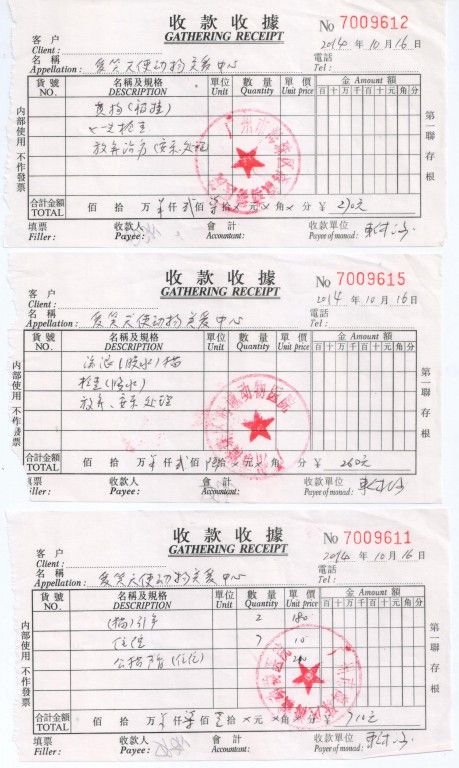 收款收據
GATHERING RECEIPT
No 7009612
客户
Client :
2014 年 10 月 16 日
名稱
Appellation : 爱笑天使动物关爱中心
電話
Tel :
貨號 名稱及規格 單位 數量 單價 金 Amount 額
NO. DESCRIPTION Unit Quantity Unit price 百 十 万 千 百 十 元 角 分
放弃治疗 安乐处理
内部使用 不作發票
第一聯 存根
合計金額 佰 拾 万 仟 贰佰 拾 元 角 分 ¥
TOTAL
填票 收款人 會計 收款單位
Filler : Payee : Accountant: Payee of monad :
收款收據
GATHERING RECEIPT
No 7009615
客户
Client :
2014 年 10 月 16 日
名稱
Appellation : 爱笑天使动物关爱中心
電話
Tel :
貨號 名稱及規格 單位 數量 單價 金 Amount 額
NO. DESCRIPTION Unit Quantity Unit price 百 十 万 千 百 十 元 角 分
流浪 猫
检查
放弃、安乐处理
内部使用 不作發票
第一聯 存根
动物医院
合計金額 佰 拾 万 仟 贰佰 拾 元 角 分 ¥ 260元
TOTAL
填票 收款人 會計 收款單位
Filler : Payee : Accountant: Payee of monad :
收款收據
GATHERING RECEIPT
No 7009611
客户
Client :
2014 年 10 月 16 日
名稱
Appellation : 爱笑天使动物关爱中心
電話
Tel :
貨號 名稱及規格 單位 數量 單價 金 Amount 額
NO. DESCRIPTION Unit Quantity Unit price 百 十 万 千 百 十 元 角 分
(猫) 2 180
住院 7 10
公猫 (住院)
内部使用 不作發票
第一聯 存根
合計金額 佰 拾 万 仟 佰 拾 元 角 分 ¥ 710元
TOTAL
填票 收款人 會計 收款單位
Filler : Payee : Accountant: Payee of monad :